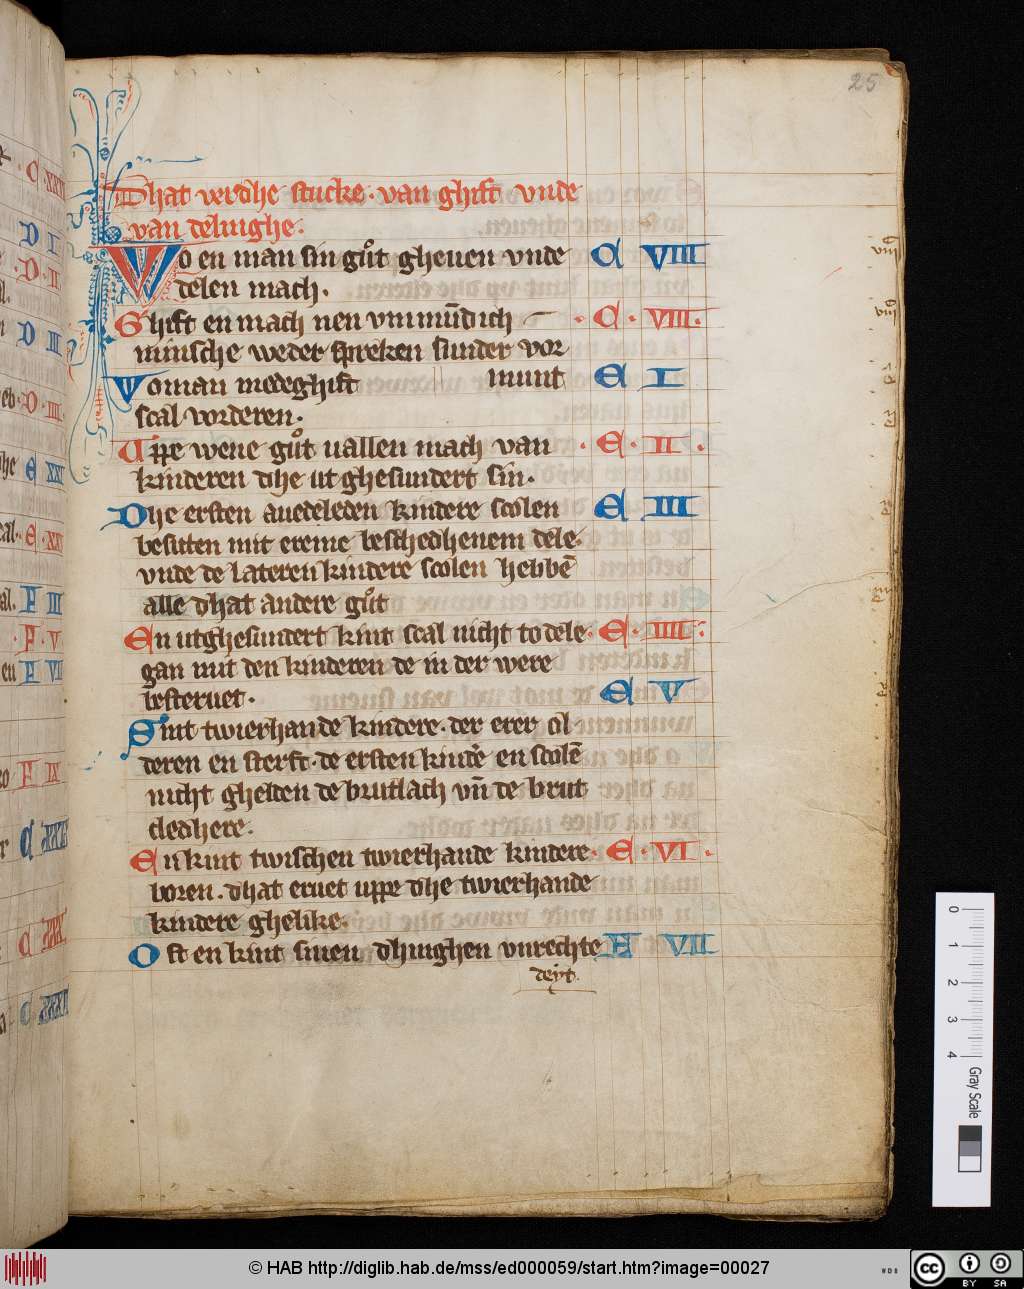 25
Dhat verdhe stucke · van ghift vnde
van delinghe ·
Wo en man sin gůt gheuen vnde C VIII
delen mach ·
Ghift en mach nen vnmūdich · C · VIII ·
minsche weder spreken sunder vor
Wo man medeghift munt E I
scal vorderen ·
Uppe wene gůt uallen mach van · E · II ·
kinderen dhe ut ghesundert sin ·
Dhe ersten auedeleden kindere scolen E III
besitten mit ereme beschedhenem dele ·
vnde de lateren kindere scolen hebbē
alle dhat andere gůt
En utghesundert kint scal nicht to dele · E · IIII ·
gan mit den kinderen de in der were
besteruet · E V
Sint twierhande kindere · der erer ol
deren en sterft · de ersten kindé en scolē
nicht ghelden de brutlach vn̄ de brut
cledhere ·
En kint twischen twierhande kindere · E · VI ·
boren · dhat eruet uppe dhe twierhande
kindere ghelike ·
Oft en kint sinen dhinghen vnrechte E VII
deyt ·
0 1 2 3 4 Gray Scale
© HAB http://diglib.hab.de/mss/ed000059/start.htm?image=00027
WDB
cc BY SA